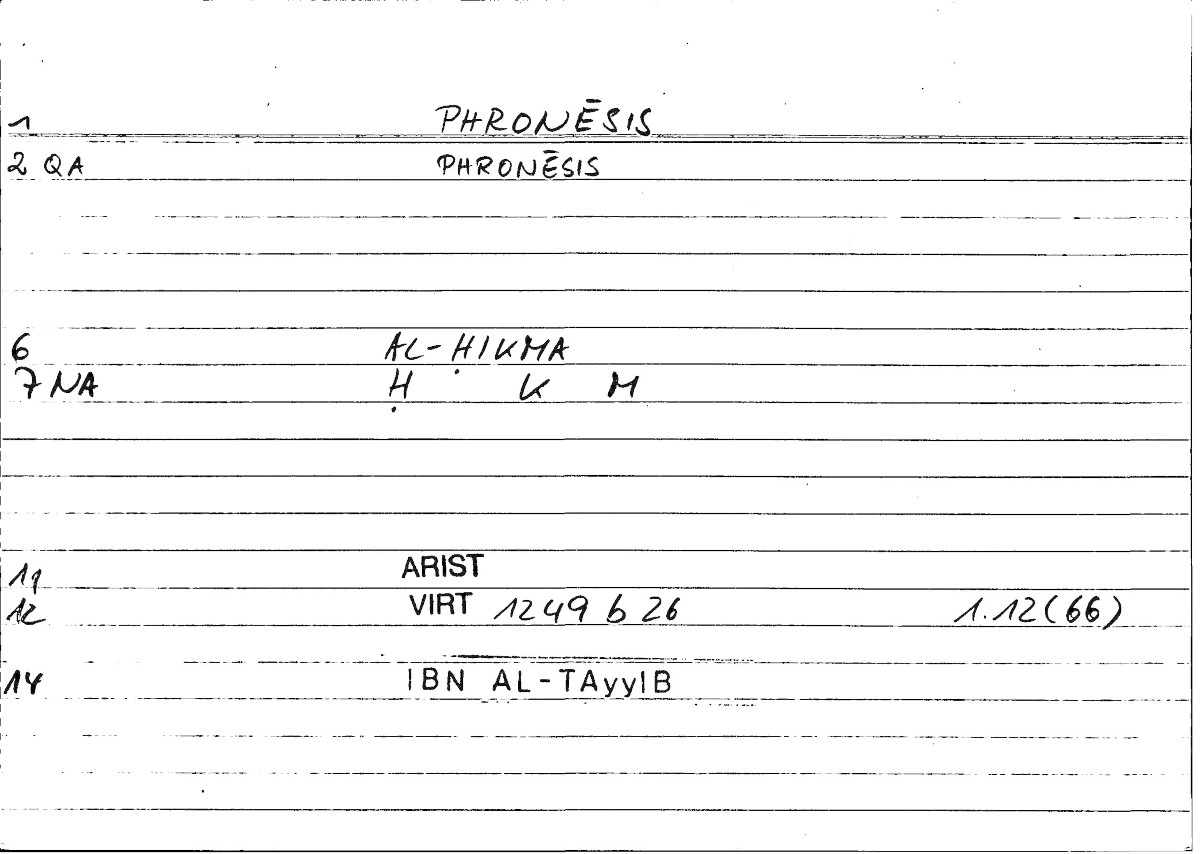 1 PHRONĒSIS
2 QA PHRONĒSIS
6 AL-ḤIKMA
7 NA Ḥ K M
11 ARIST
12 VIRT 1249 b 26 1.12(66)
14 IBN AL-TAyyIB